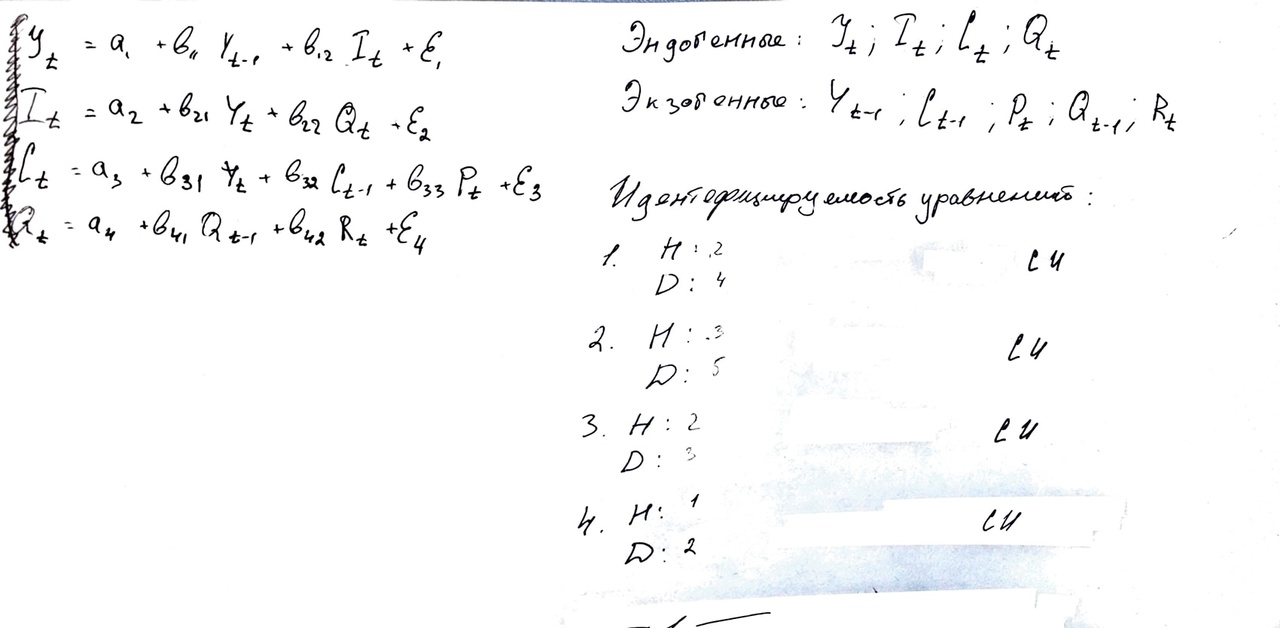 Y_t = a_1 + b_11 Y_{t-1} + b_12 I_t + ε_1
I_t = a_2 + b_21 Y_t + b_22 Q_t + ε_2
C_t = a_3 + b_31 Y_t + b_32 C_{t-1} + b_33 P_t + ε_3
Q_t = a_4 + b_41 Q_{t-1} + b_42 R_t + ε_4
Эндогенные: Y_t; I_t; C_t; Q_t
Экзогенные: Y_{t-1}; C_{t-1}; P_t; Q_{t-1}; R_t
Идентефицируемость уравнений:
1. H: 2 СИ
D: 4
2. H: 3 СИ
D: 5
3. H: 2 СИ
D: 3
4. H: 1 СИ
D: 2